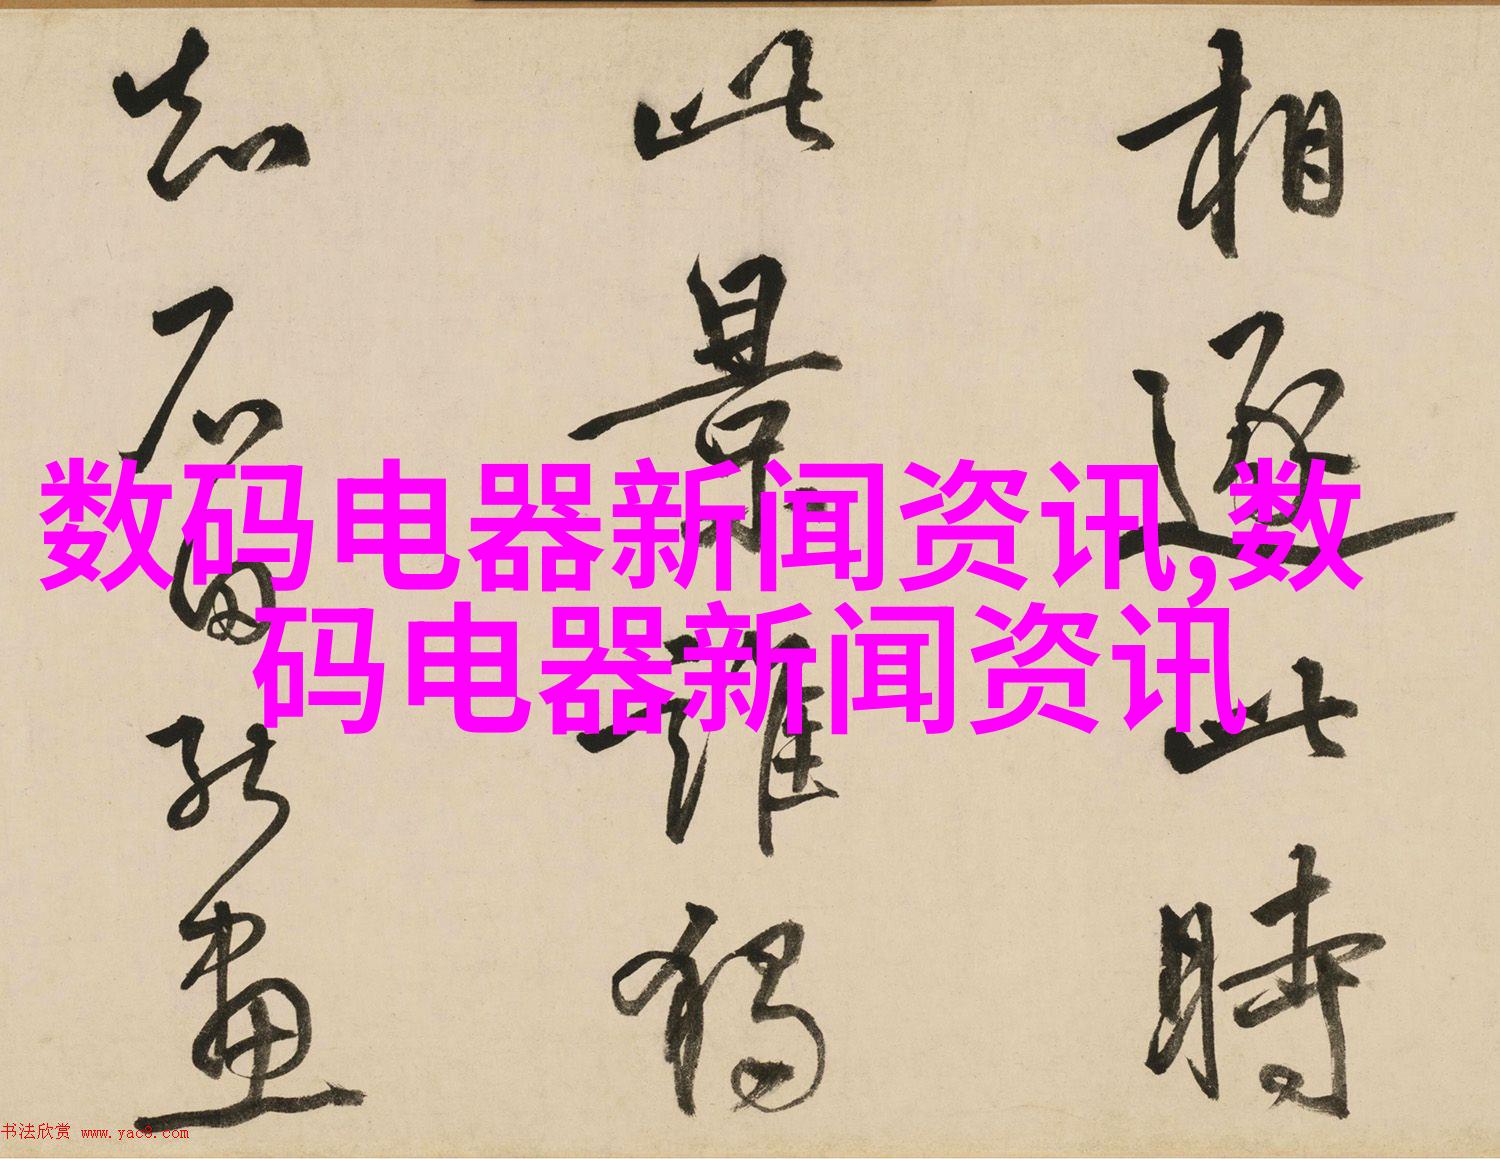 相逐此時
此景誰獨
知石能畫
数码电器新闻资讯,数
码电器新闻资讯
书法欣赏 www.yac8.com